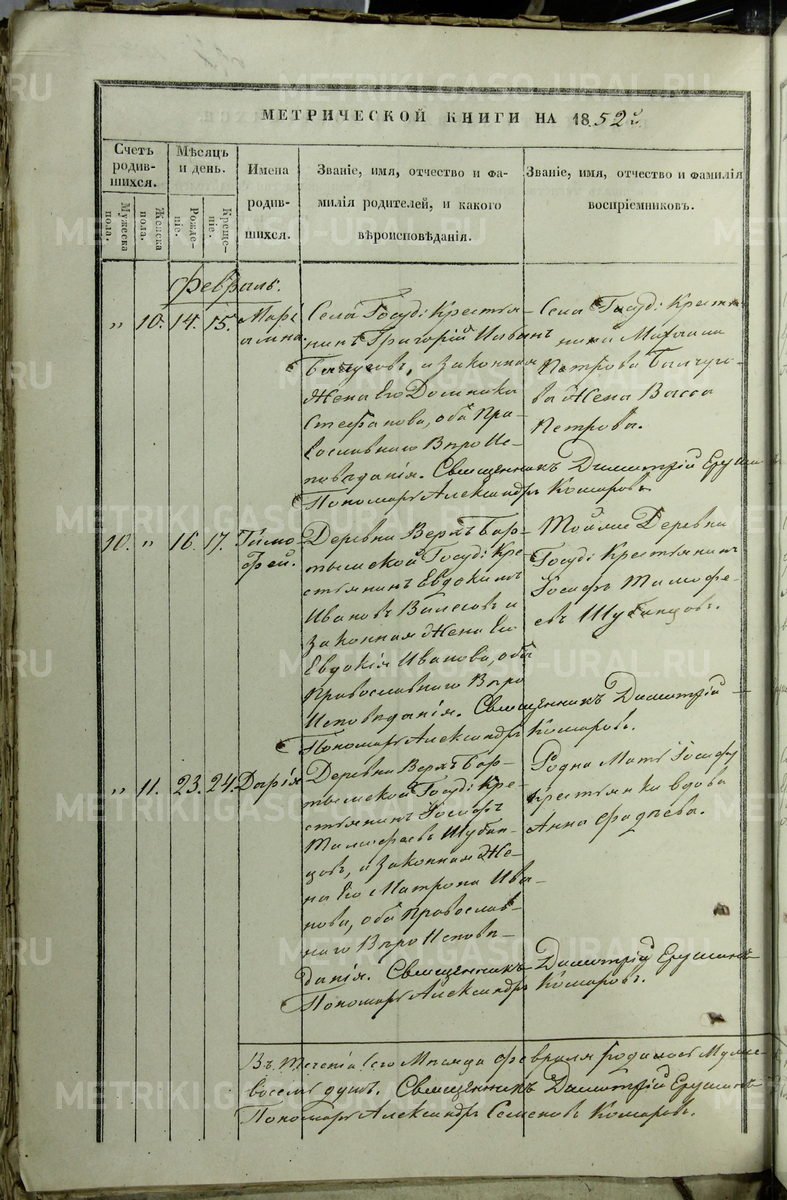 МЕТРИЧЕСКОЙ КНИГИ НА 1852й
Счетъ родив-шихся.
Мужеска пола.
Женска пола.
Мѣсяцъ и день.
Рожде-ніе.
Креще-ніе.
Имена родив-шихся.
Званіе, имя, отчество и фа-
милія родителей, и какого
вѣроисповѣданія.
Званіе, имя, отчество и фамилія
воспріемниковъ.
Февраль.
„ 10. 14. 15. Марі
амна.
Села Госуд: Крестья-
нинъ Григорій Ивановъ
и законная
жена его Домника
Стефанова, оба Пра-
вославнаго Вѣро Ис-
повѣданія. Священникъ Димитрій
Пономарь Александръ Комаровъ
Села Госуд: Крестья-
Михаила
Петрова
ва жена Васса
Петрова.
10. „ 16. 17. Тимо-
фей.
Деревни Верхъ Бар-
тымской Госуд: Кре-
стьянинъ Евдокимъ
Ивановъ и
законная жена его
Евдокія Иванова, оба
Православнаго Вѣро
Исповѣданія. Священникъ Димитрій
Пономарь Александръ Комаровъ.
Тойже Деревни
Госуд: Крестьянинъ
Іосифъ Тимофе-
евъ Шубинцовъ.
„ 11. 23. 24. Дарія
Деревни Верхъ Бар-
тымской Госуд: Кре-
стьянинъ Іосифъ
Тимофеевъ Шубин-
цовъ, и законная же-
на его Матрона Ива-
нова, оба Православ-
наго Вѣро Исповѣ-
данія. Священникъ Димитрій
Пономарь Александръ Комаровъ.
Родна Мать Іосифу
крестьянка вдова
Анна Фадѣева.
Въ теченіи сего Мѣсяца Февраля родилось
восемь душъ. Священникъ Димитрій
Пономарь Александръ Семеновъ Комаровъ.
METRIKI.GASO-URAL.RU